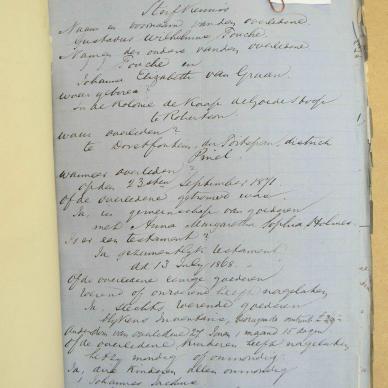 Sterfkennis
Naam en voornaam van den overledene
Gustavus Wilhelmus Fouche
Namen der ouders van den overledene
Fouche en
Johanna Elizabeth van Graan
waar geboren?
In de Kolonie de Kaap de Goede Hoop
te Robertson
waar overleden?
te district
wanneer overleden?
op den 23sten September 1871
of de overledene getrouwd was.
Ja, in gemeenschap van goederen
met Anna Margaretha Sophia Holmes.
Is er een testament?
Ja gezamentlijk testament,
dd 13 July 1868.
of de overledene eenige goederen
roerend of onroerend heeft nagelaten
Ja, slechts roerende goederen
Inventaris,
Ouderdom van overledene 27 Jaren, 1 maand 15 dagen
of de overledene kinderen heeft nagelaten
hetzij mondig of onmondig
Ja, drie Kinderen allen onmondig
1 Johannes